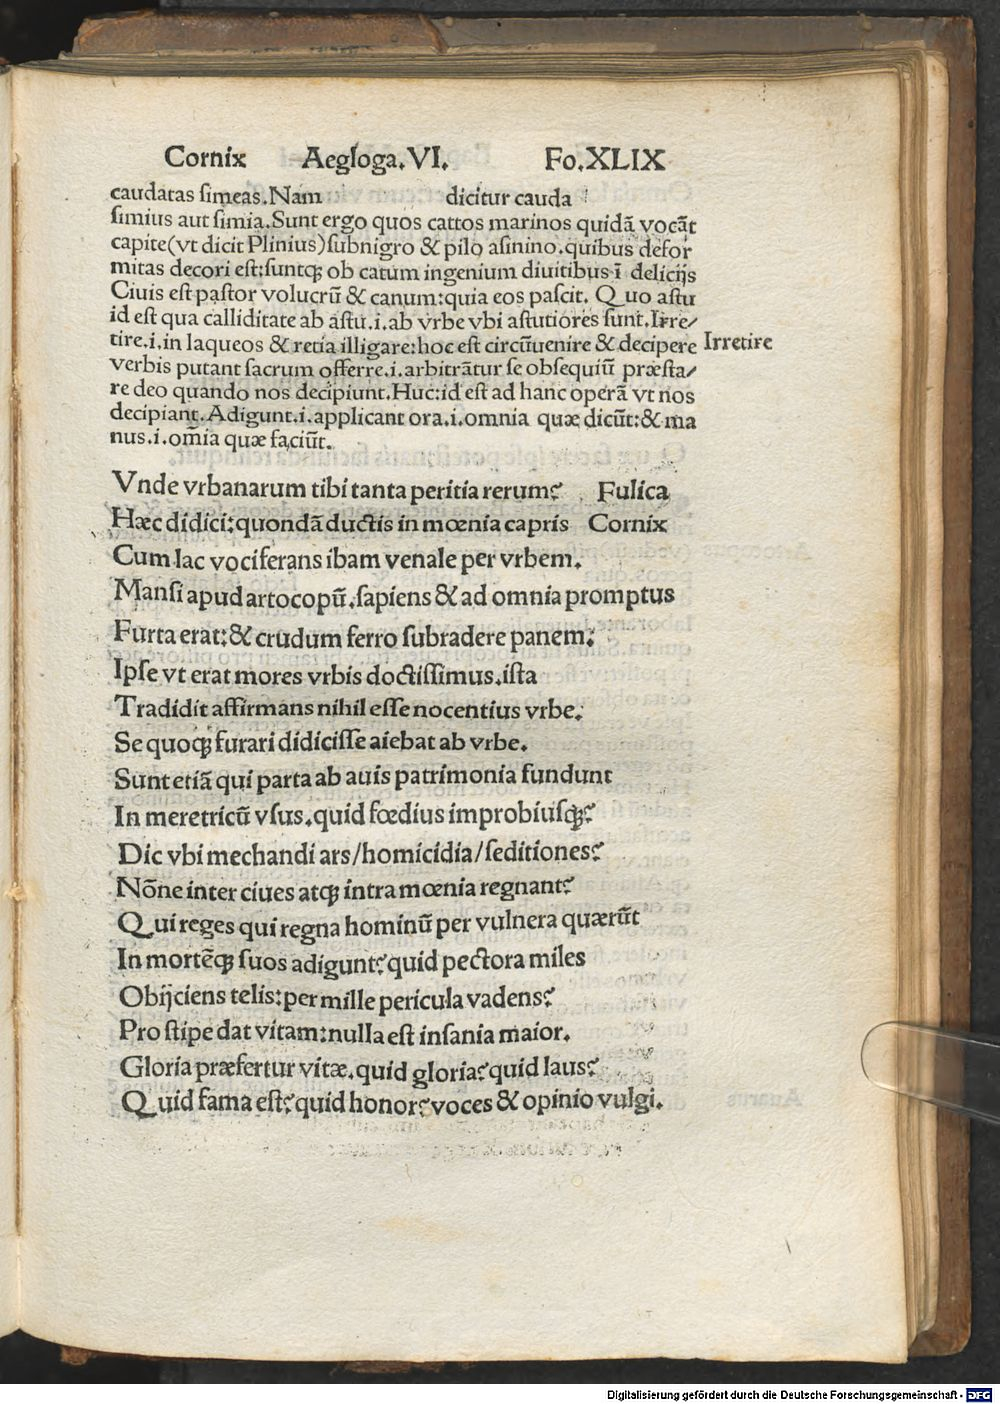 Cornix Aegloga.VI. Fo.XLIX
caudatas ſimeas.Nam dicitur cauda
ſimius aut ſimia.Sunt ergo quos cattos marinos quidā vocāt
capite(vt dicit Plinius)ſubnigro & pilo aſinino.quibus defor
mitas decori eſt:ſuntqꝫ ob catum ingenium diuitibus ī delicijs
Ciuis eſt paſtor volucrū & canum:quia eos paſcit. Quo aſtu
id eſt qua calliditate ab aſtu.i.ab vrbe vbi aſtutiores ſunt.Irre/
tire.i.in laqueos & retia illigare:hoc eſt circūuenire & decipere Irretire
verbis putant ſacrum offerre.i.arbitrātur ſe obſequiū præſta/
re deo quando nos decipiunt.Huc:id eſt ad hanc operā vt nos
decipiant.Adigunt.i.applicant ora.i.omnia quæ dicūt:& ma
nus.i.om̄ia quæ faciūt.
Vnde vrbanarum tibi tanta peritia rerum? Fulica
Hæc didici:quondā ductis in mœnia capris Cornix
Cum lac vociferans ibam venale per vrbem.
Manſi apud artocopū.ſapiens & ad omnia promptus
Furta erat:& crudum ferro ſubradere panem:
Ipſe vt erat mores vrbis doctiſſimus.iſta
Tradidit affirmans nihil eſſe nocentius vrbe.
Se quoqꝫ furari didiciſſe aiebat ab vrbe.
Sunt etiā qui parta ab auis patrimonia fundunt
In meretricū vſus.quid fœdius improbiuſqꝫ?
Dic vbi mechandi ars/homicidia/ſeditiones?
Nōne inter ciues atqꝫ intra mœnia regnant?
Qui reges qui regna hominū per vulnera quærūt
In mortēqꝫ ſuos adigunt?quid pectora miles
Obijciens telis:per mille pericula vadens?
Pro ſtipe dat vitam:nulla eſt inſania maior.
Gloria præfertur vitæ.quid gloria?quid laus?
Quid fama eſt?quid honor?voces & opinio vulgi.
Digitalisierung gefördert durch die Deutsche Forschungsgemeinschaft - DFG